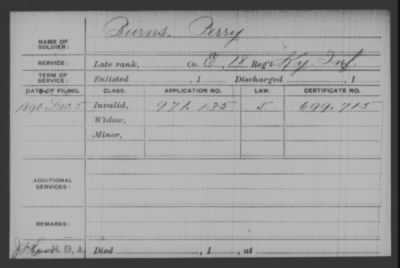 NAME OF SOLDIER: Burns, Perry
SERVICE: Late rank, Co. E, 18 Reg't Ky. Inf.
TERM OF SERVICE: Enlisted , 1 Discharged , 1
DATE OF FILING. CLASS. APPLICATION NO. LAW. CERTIFICATE NO.
1890 Dec 5 Invalid, 971.135 J. 699.715
Widow,
Minor,
ADDITIONAL SERVICES:
REMARKS:
Died , 1 , at